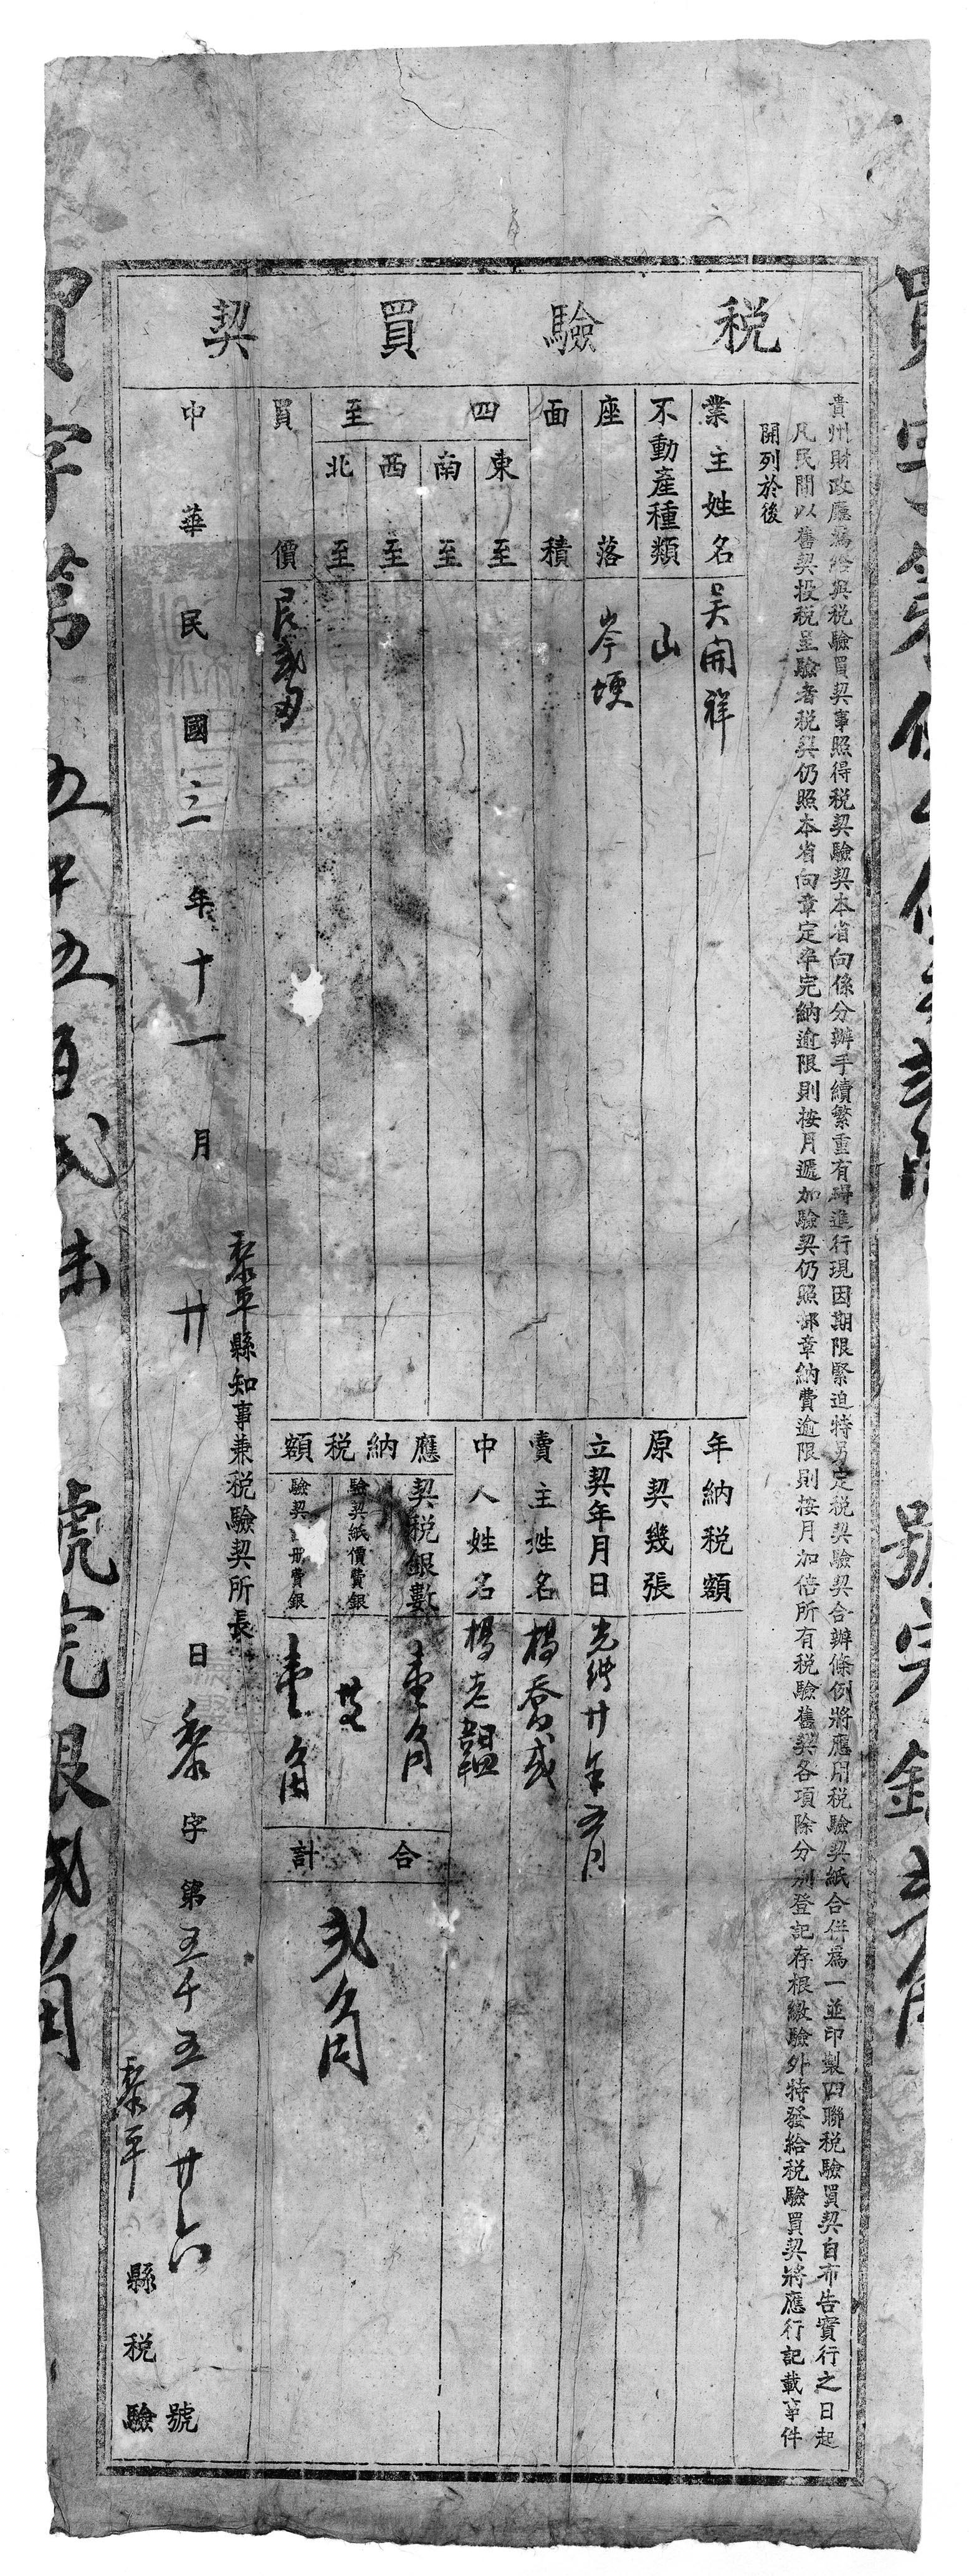 稅驗買契
貴州財政廳為給與稅驗買契事照得稅契驗契本省向係分辦手續繁重有碍進行現因期限緊迫特另定稅契驗契合辦條例將應用稅驗契紙合併為一並印製四聯稅驗買契自布告實行之日起
凡民間以舊契投稅呈驗者稅契仍照本省向章定率完納逾限則按月遞加驗契仍照部章納費逾限則按月加倍所有稅驗舊契各項除分別登記存根繳驗外特發給稅驗買契將應行記載事件
開列於後
業主姓名 吳開祥
不動產種類 山
座落 岑埂
面積
四至
東至
南至
西至
北至
買價
年納稅額
原契幾張
立契年月日 光緒廿年五月
賣主姓名 楊喬貳
中人姓名 楊老韞
應納稅額
契稅銀數 壹角
驗契紙價費銀
驗契冊費銀 壹角
合計 貳角
黎平縣知事兼稅驗契所長
中華民國三年十一月廿日 黎字第五千五百廿六號
黎平縣稅驗
買字第五千五百貳
號完銀貳角